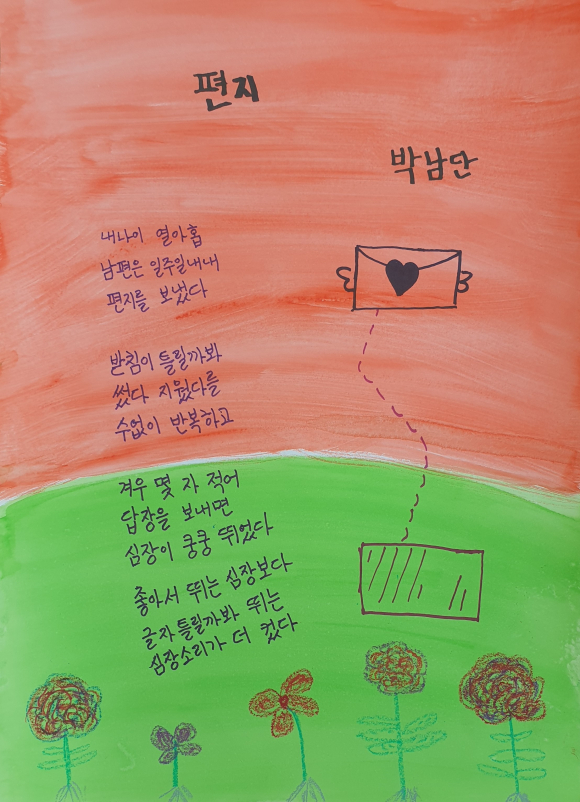 편지
박남단
내나이 열아홉
남편은 일주일내내
편지를 보냈다
받침이 틀릴까봐
썼다 지웠다를
수없이 반복하고
겨우 몇 자 적어
답장을 보내면
심장이 쿵쿵 뛰었다
좋아서 뛰는 심장보다
글자틀릴까봐 뛰는
심장소리가 더 컸다